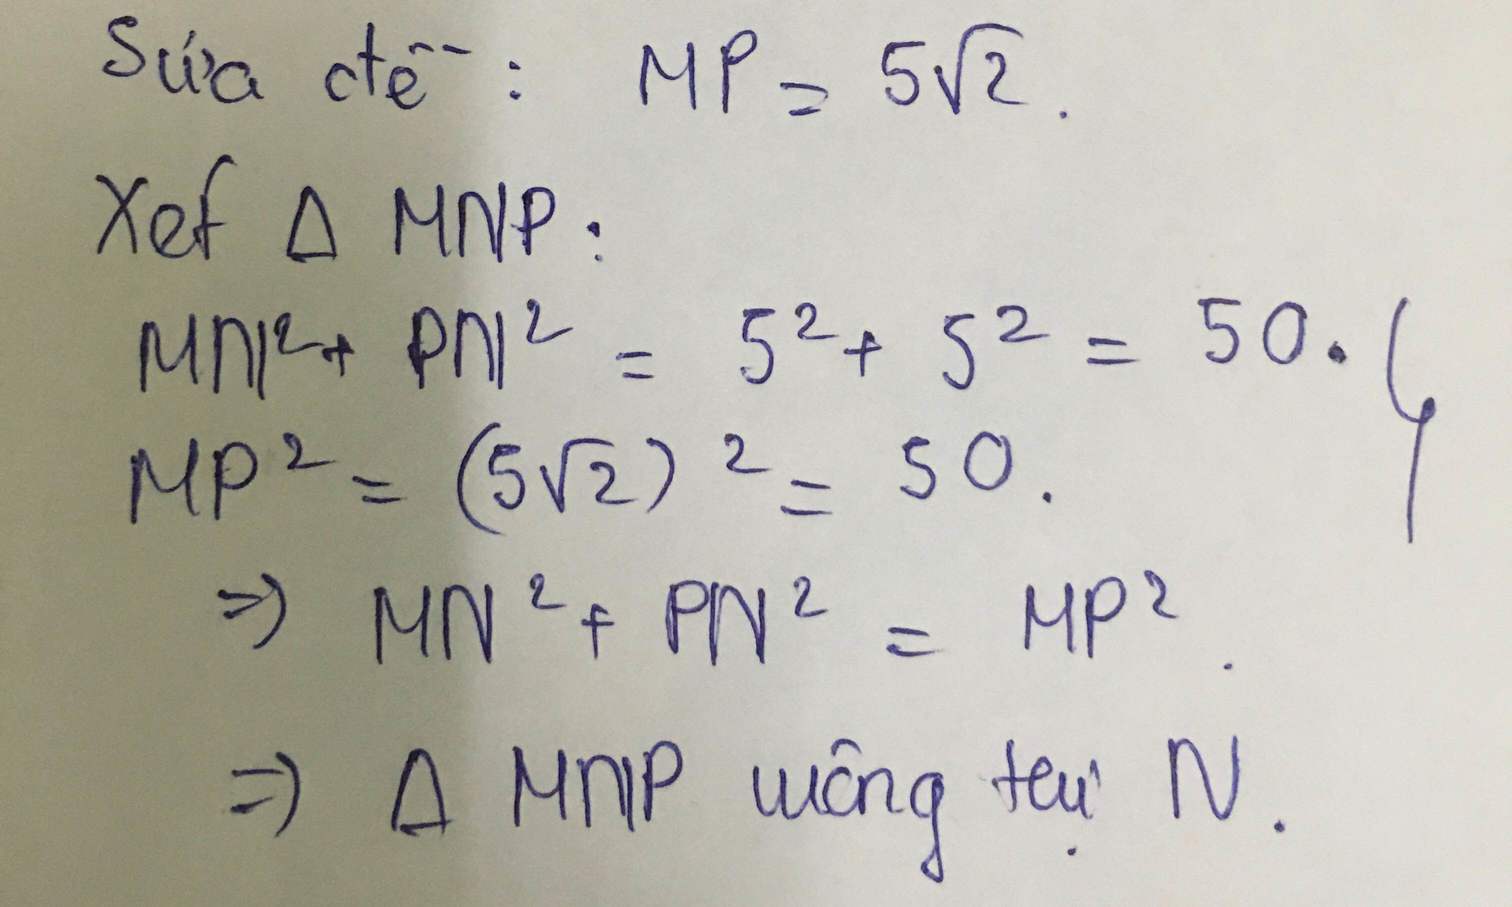 Sửa đề : MP = 5√2.
Xét Δ MNP :
MN² + PN² = 5² + 5² = 50.
MP² = (5√2)² = 50.
=> MN² + PN² = MP².
=> Δ MNP vuông tại N.